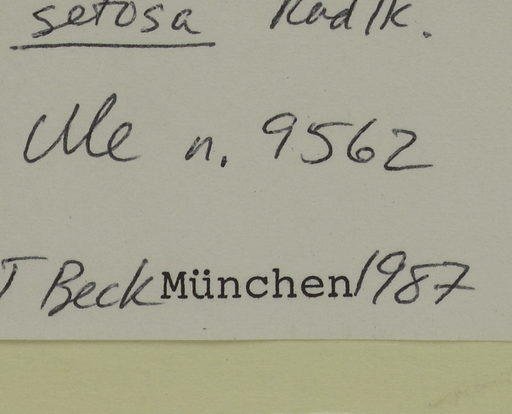 setosa Radlk.
Ule n. 9562
T Beck München 1987